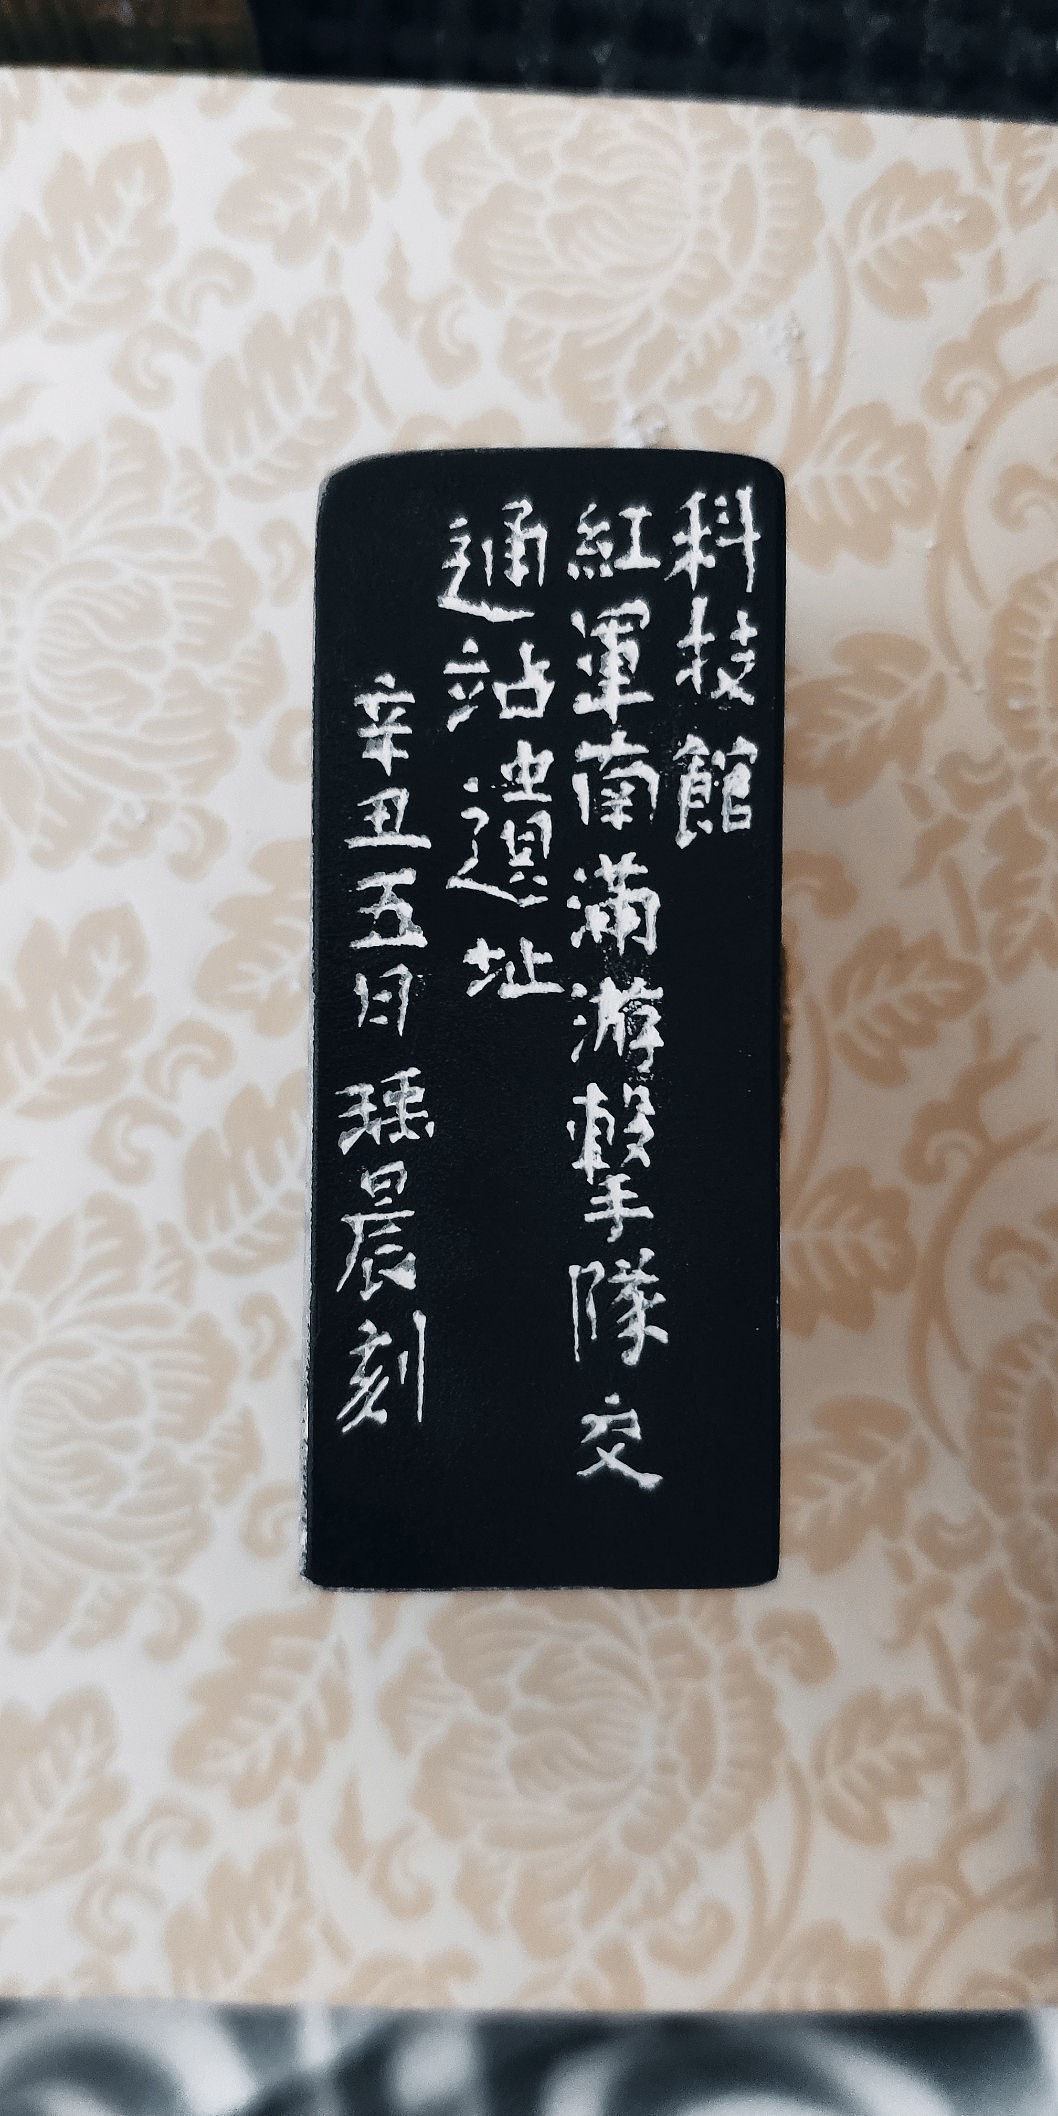 科技館
紅軍南滿游擊隊交
通站遺址
辛丑五日 瑤晨刻